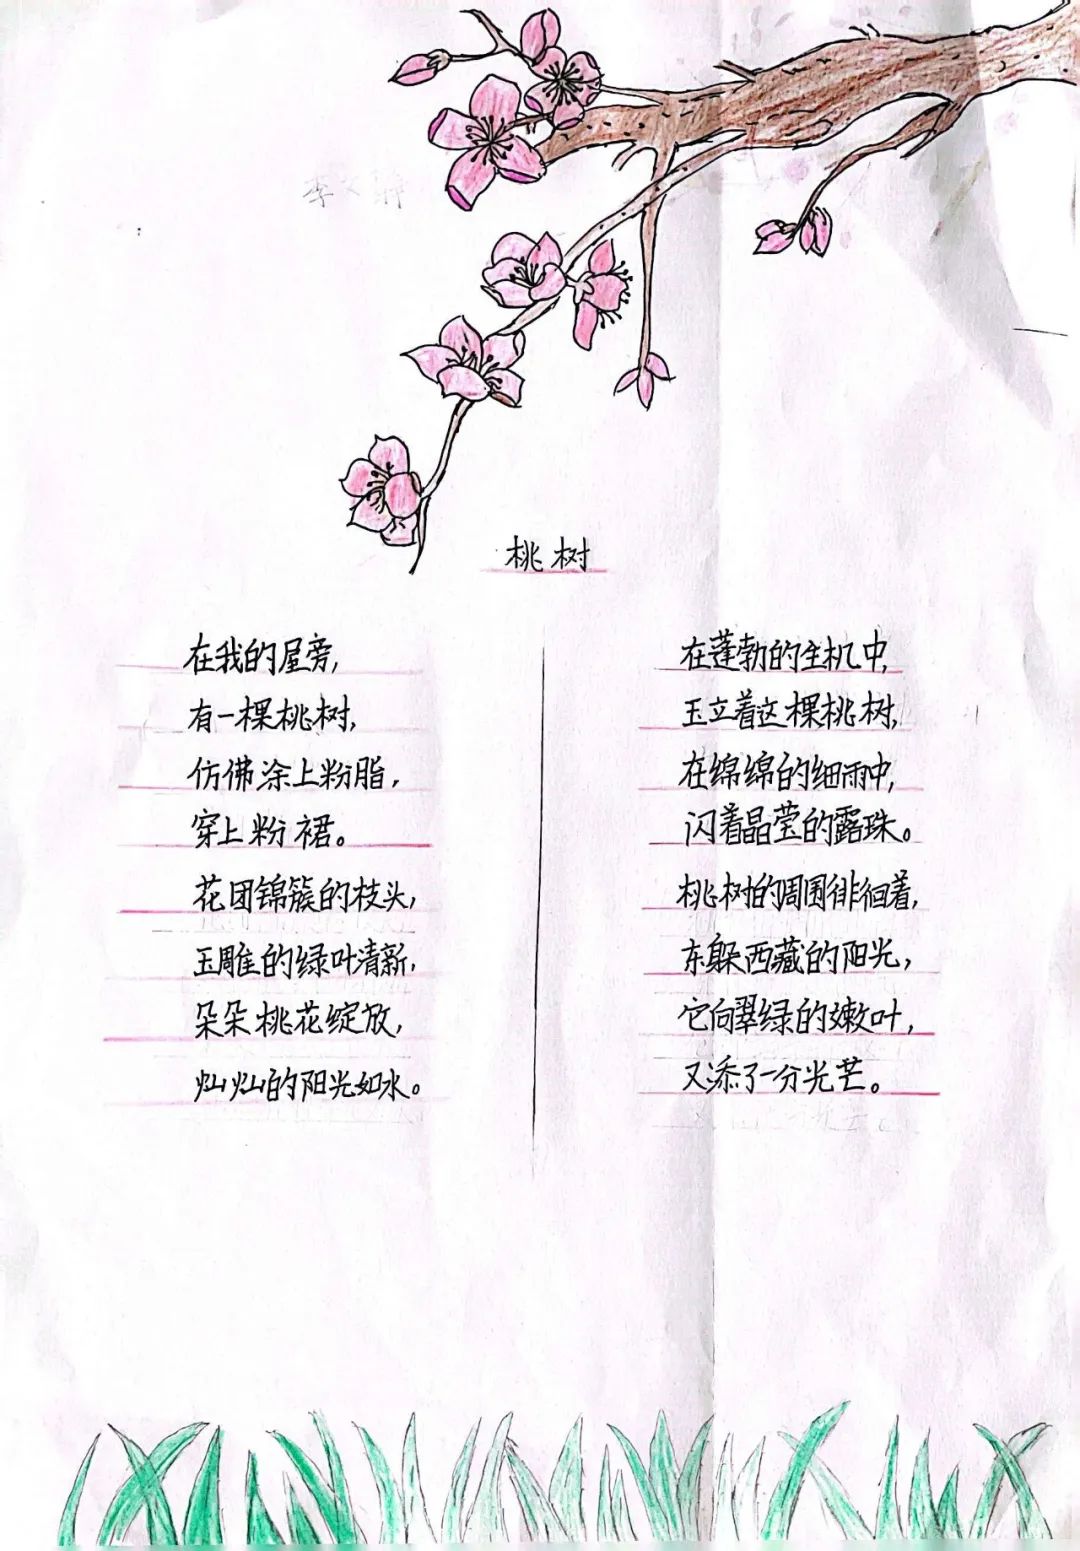 桃树
在我的屋旁,
有一棵桃树,
仿佛涂上粉脂,
穿上粉裙。
花团锦簇的枝头,
玉雕的绿叶清新,
朵朵桃花绽放,
灿灿的阳光如水。
在蓬勃的生机中,
玉立着这棵桃树,
在绵绵的细雨中,
闪着晶莹的露珠。
桃树的周围徘徊着,
东躲西藏的阳光,
它向翠绿的嫩叶,
又添了一分光芒。